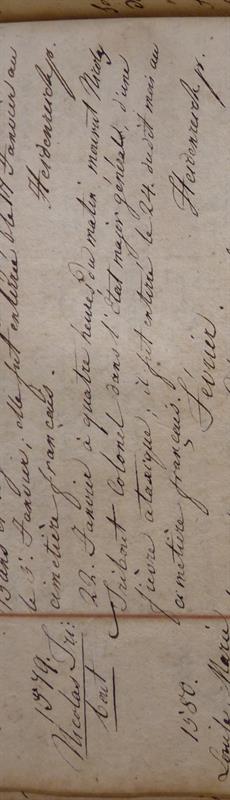 13 ans et
le 3. Janvier, elle fut enterrée le 14 Janvier au
cimetière français. Heidenreich p.
1379.
Nicolas Tri:
bout
22. Janvier à quatre heures du matin mourut Nicolas
Tribout Colonel dans l'État major général, d'une
fièvre ataxique; il fut enterré le 24. du dit mois au
cimetière français. Heidenreich p.
Février
1380.
Louise Marie